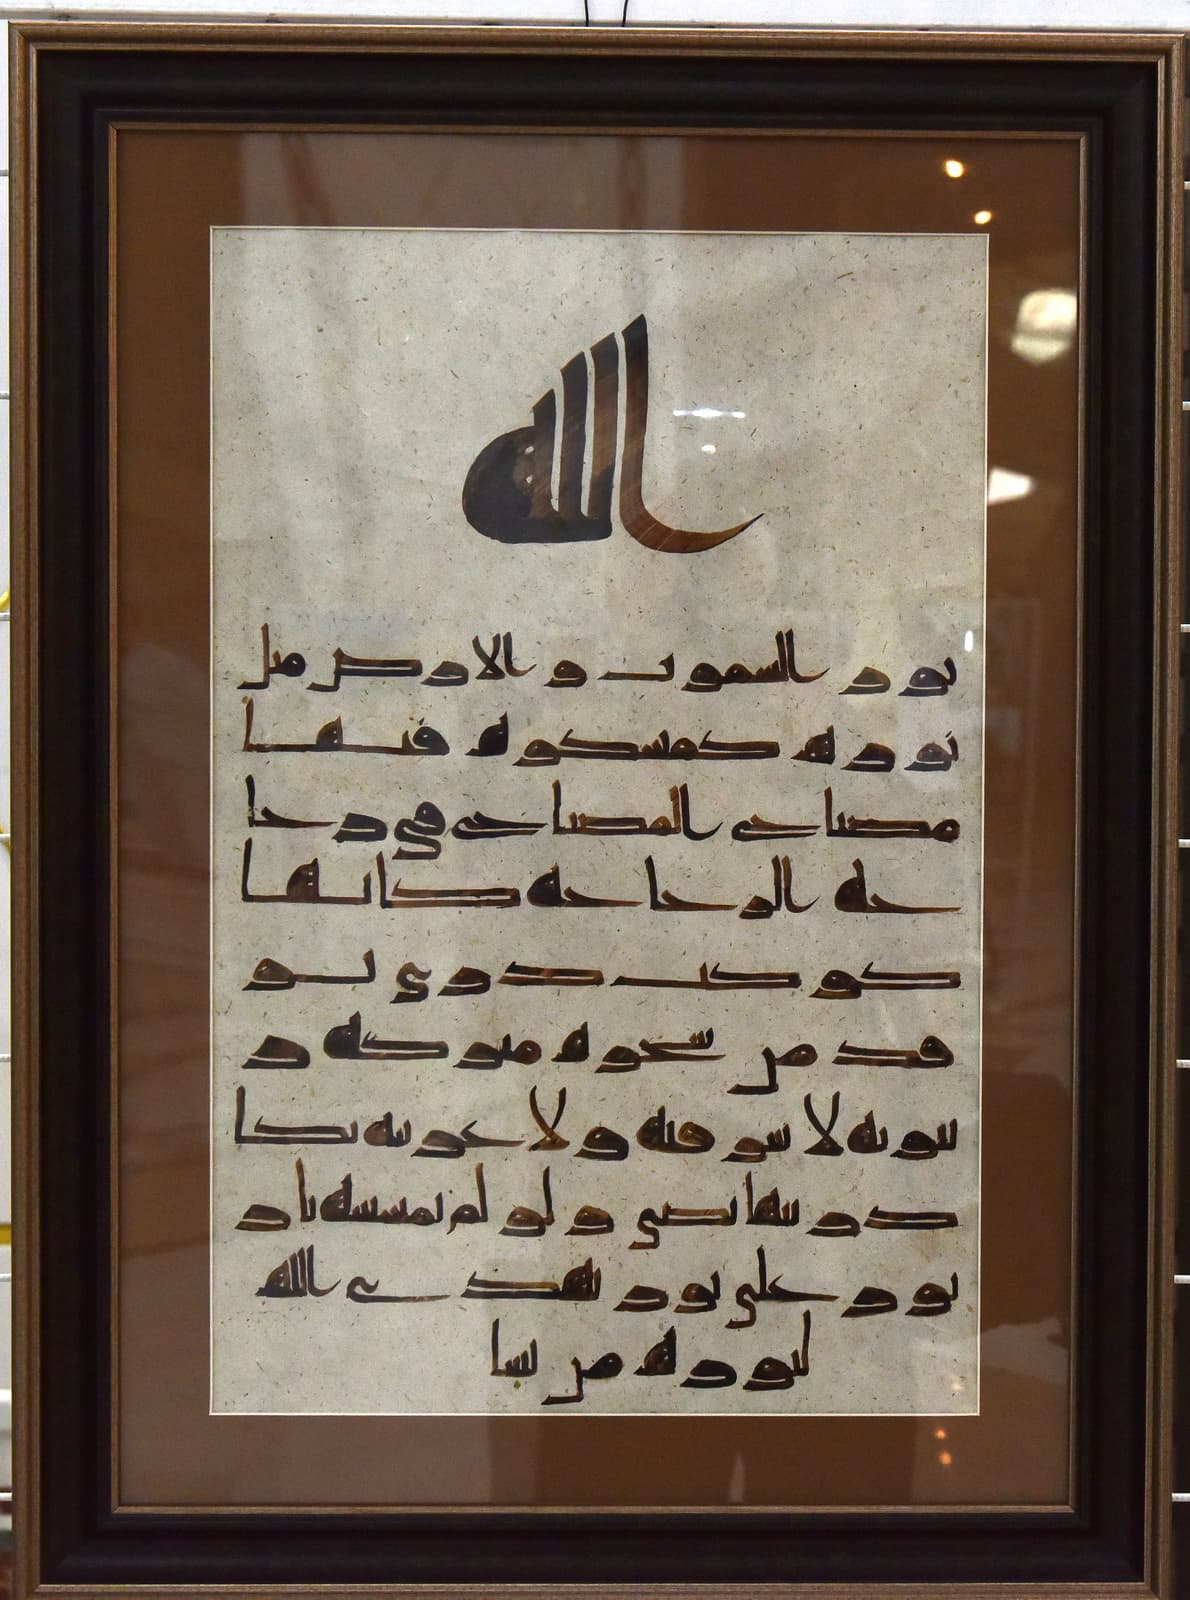 الله
نور السموت و الارض مثل
نوره كمشكوة فيها
مصباح المصباح في زجا
جة الزجاجة كانها
كوكب دري يو
قد من شجرة مبركة ز
يتونة لا شرقية ولا غربية يكا
د زيتها يضي و لو لم تمسسه نار
نور على نور يهدي الله
لنوره من يشا